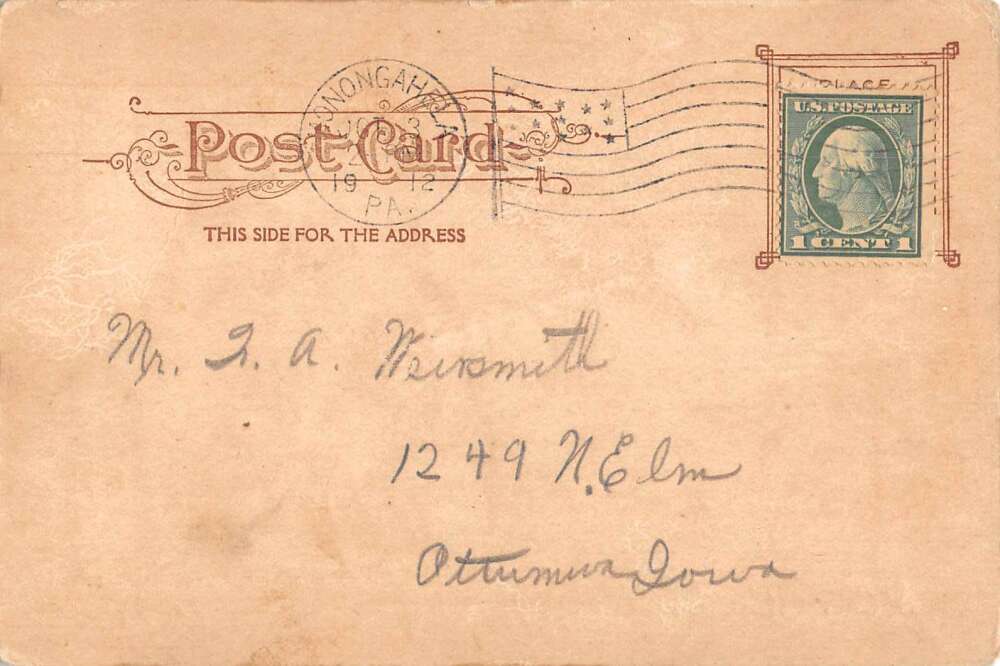 MONONGAHELA
OCT 3
19 12
PA.
Post Card
THIS SIDE FOR THE ADDRESS
PLACE
U.S. POSTAGE
1 CENT 1
Mr. I. A. Weirsmith
1249 N. Elm
Ottumwa Iowa